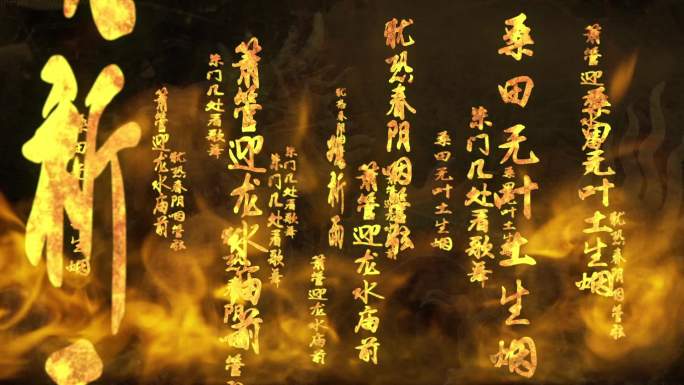 犹恐春阴咽管弦
桑田无叶土生烟
桑田无叶土生烟
朱门几处看歌舞
桑田无叶土生烟
犹恐春阴咽管弦
萧管迎龙水庙前
观祈雨
萧管迎龙水庙前
朱门几处看歌舞
朱门几处看歌舞
萧管迎龙水庙前
朱门几处看歌舞
犹恐春阴咽管弦
萧管迎龙水庙前
祈
生烟